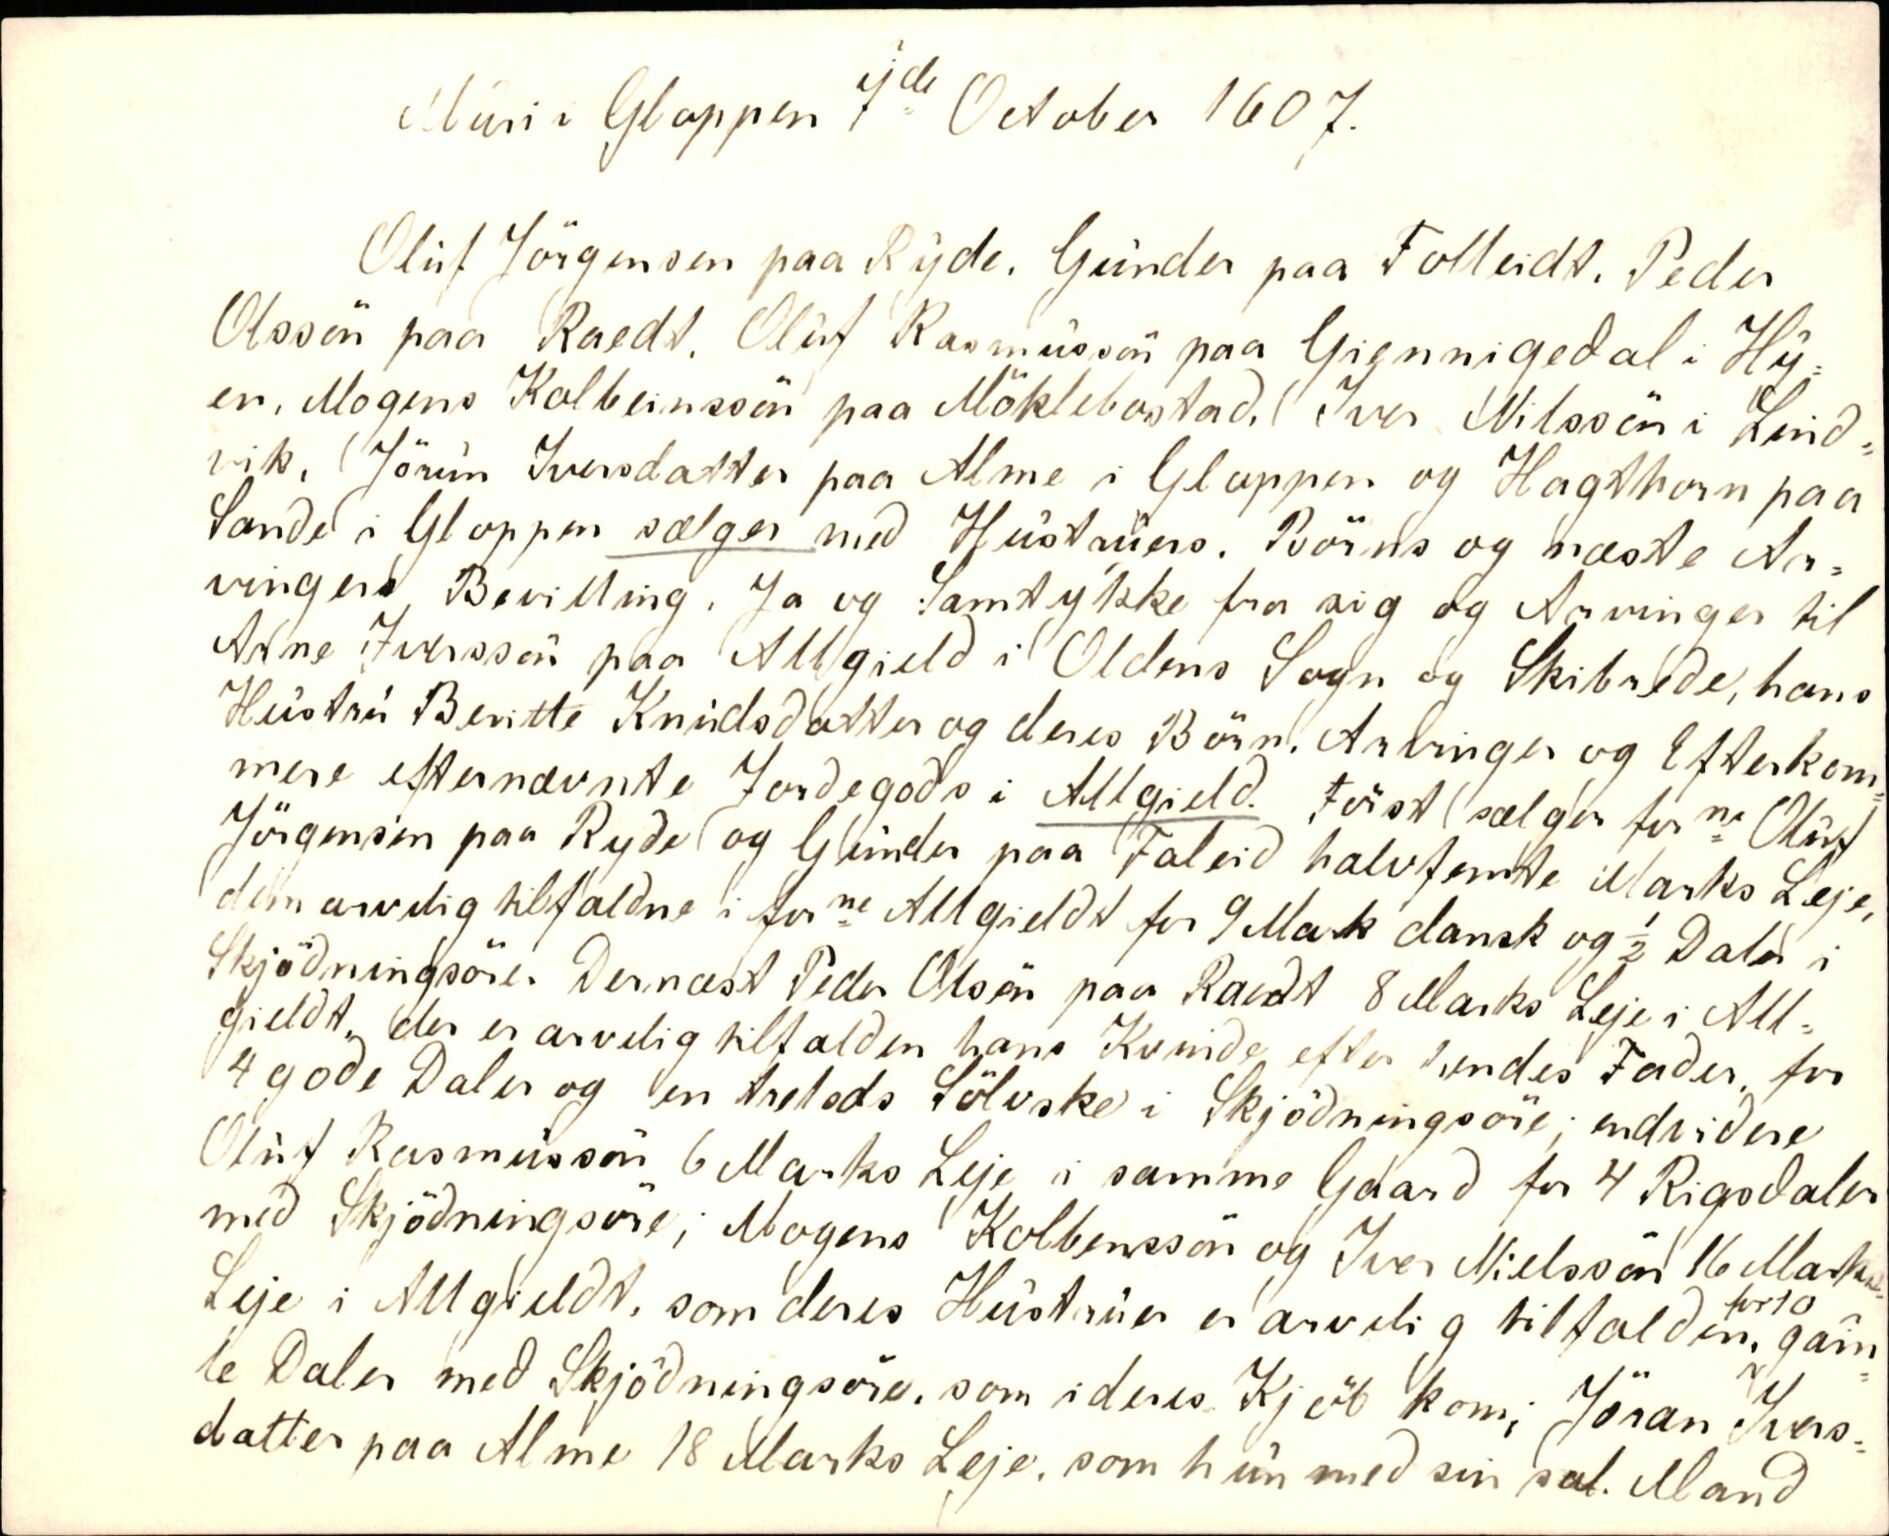 Muri i Gloppen 7de October 1607.
Oluf Jörgensen paa Ryde, Gunder paa Folleidt, Peder
Olssön paa Raedt, Oluf Rasmussön paa Giennigedal i Hy-
en, Mogens Kolbeinssön paa Möklebostad, Iver Nilssön i Leid-
vik, Jörun Iversdatter paa Alme i Gloppen og Hagthorn paa
Sande i Gloppen sælger med Hustruers, Börns og næste Ar-
vingers Bevilling, Ja og Samtykke fra sig og Arvinger til
Arne Iverssön paa Allgield i Oldens Sogn og Skibrede, hans
Hustru Beritte Knudsdatter og deres Börn, Arvinger og Efterkom-
mere efternævnte Jordegods i Allgield. Först sælger forne Oluf
Jörgensen paa Ryde og Gunder paa Faleid halvfemte Marks Leje,
dem arvelig tilfaldne i forne Allgieldt for 9 Mark dansk og ½ Daler i
Skjödningsöre. Dernæst Peder Olsön paa Raedt 8 Marks Leje i All-
gieldt, der er arvelig tilfalden hans Kvinde efter hendes Fader, for
4 gode Daler og en trelods Sölvske i Skjödningsöre; endvidere
Oluf Rasmussön 6 Marks Leje i samme Gaard for 4 Rigsdaler
med Skjödningsöre; Mogens Kolbenssön og Iver Nielssön 16 Marks
Leje i Allgieldt, som deres Hustruer er arvelig tilfalden, for 10 gam-
le Daler med Skjödningsöre, som i deres Kjöb kom; Jöran Ivers-
datter paa Alme 18 Marks Leje, som hun med sin sal. Mand